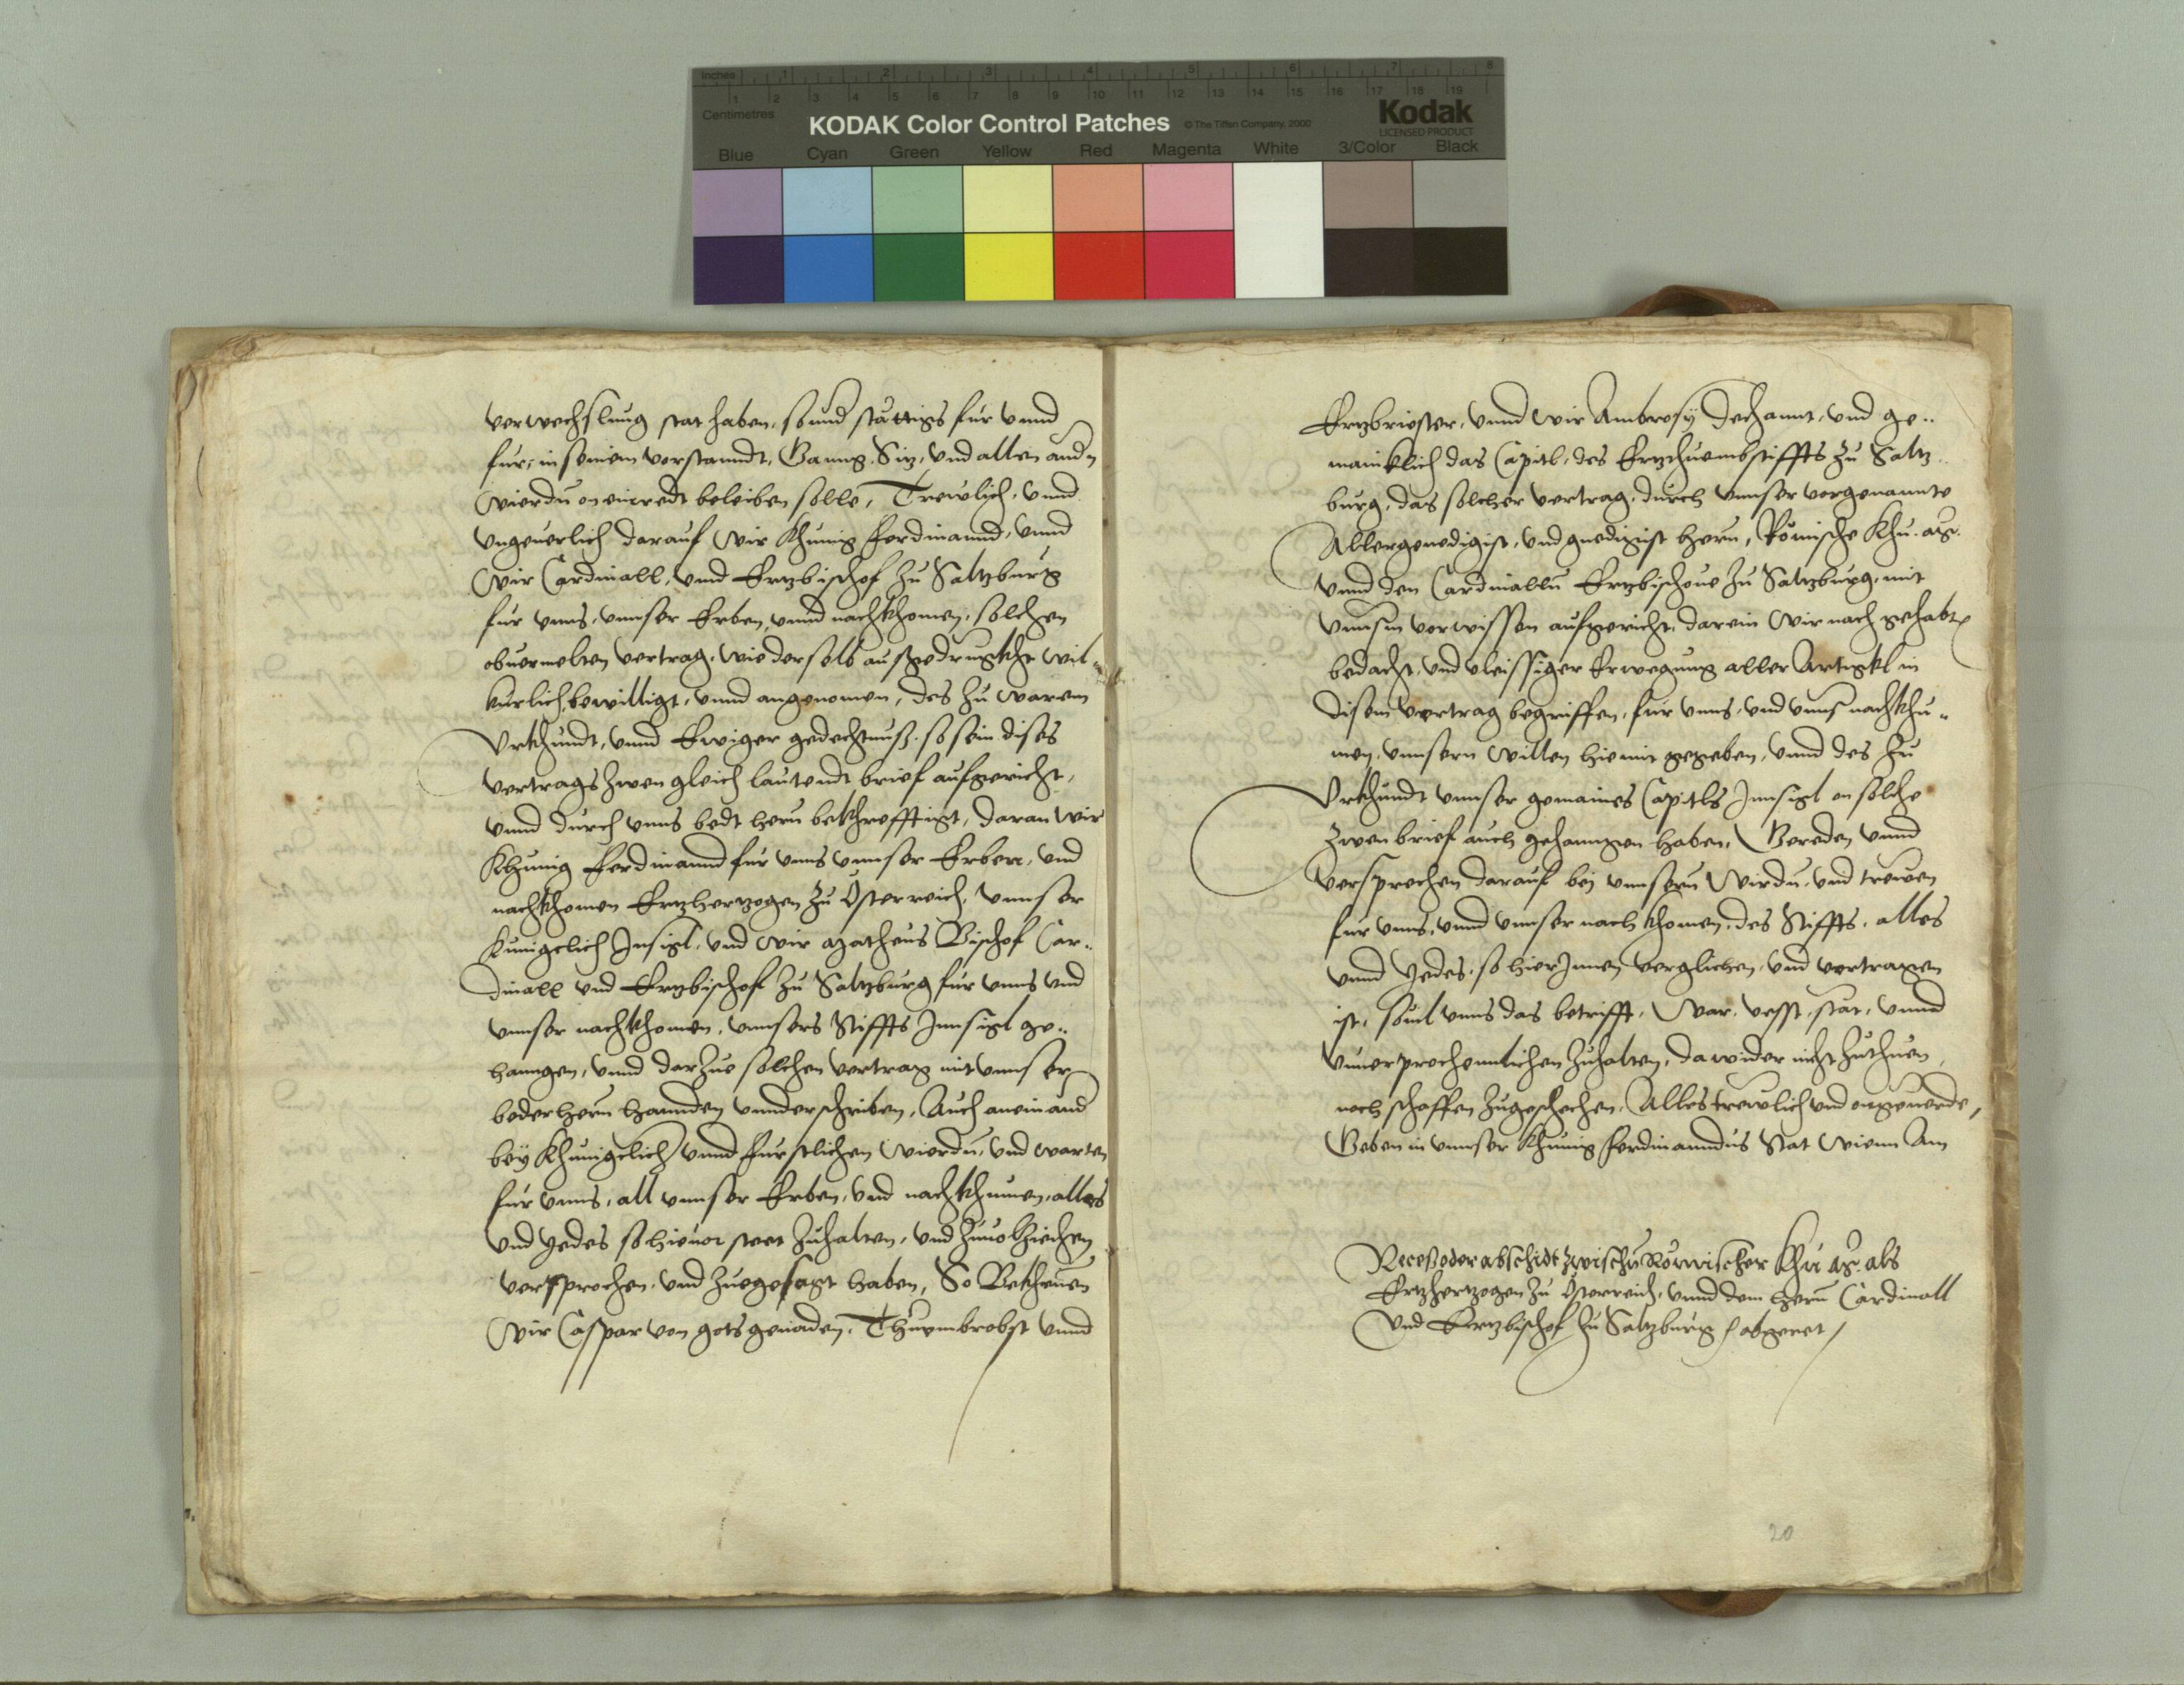 Inches 1 2 3 4 5 6 7 8
Centimetres 1 2 3 4 5 6 7 8 9 10 11 12 13 14 15 16 17 18 19
KODAK Color Control Patches © The Tiffen Company, 2000 Kodak
LICENSED PRODUCT
Blue Cyan Green Yellow Red Magenta White 3/Color Black
verwechslung stat haben, sonnd stättigs für vnnd
für, in seinem verstanndt, Ganng, Siz, vnd allen
wierdn on einredt beleiben solle, Trewlich, vnnd
vngeuerlich darauf Wir Khunig Ferdinannd, vnnd
Wir Cardinall, vnnd Ertzbischof zu Saltzburg
für vnns, vnnser Erben, vnnd nachkhomen, solchen
obuermelten vertrag, wie der selb außgedruckht wil¬
kürlich bewilligt, vnnd angenomen, des zu warem
Vrkhundt, vnnd Ewiger gedechtnuß, so sein dises
vertrags zwen gleich lautendt brief aufgericht,
vnnd durch vnns bedt herrn bekhrefftigt, daran Wir
Khunig Ferdinannd für vnns vnnser Erben, vnd
nachkhomen Ertzhertzogen zu Österreich, vnnser
Kunigclich Insigl, vnd Wir Matheus Bischof Car¬
dinall vnd Ertzbischof zu Saltzburg für vnns vnd
vnnser nachkhomen, vnnsers Stiffts Innsigl ge¬
hanngen, vnnd darzue solchen vertrag mit vnnser
beder herrn hannden vnnderschriben, Auch an einand
bey Khunigclich vnnd fürstlichen wierdn, vnd worten
für vnns, all vnnser Erben, vnd nachkhumen, alles
vnd yedes so hieuor steet zuhalten, vnd zuuolziechen
versprochen, vnd zuegesagt haben, So Bekhennen
Wir Caspar von gots genaden, Thuembrobst vnnd
Ertzbriester, vnnd Wir Ambrosy Dechannt, vnd ge¬
mainklich das Capitl, des Ertzthuembstiffts zu Saltz¬
burg, das solcher vertrag, durch vnnser vorgenannte
Allergenedigist, vnd gnedigist herrn, Römische Khu. Mt.
vnnd den Cardinalln Ertzbischoue zu Saltzburg, mit
vnnsm vorwissen aufgericht, darein Wir nach gehabt
bedacht, vnd vleissiger Erwegung aller Artigkl in
disem vertrag begriffen, für vnns, vnd vnns nachkhu¬
men, vnnsern willen hiemit gegeben, vnnd des zu
Vrkhundt vnnser gemaines Capitls Innsigl an solche
zwen brief auch gehanngen haben, Gereden vnnd
versprechen darauf bei vnnsern Wirdn, vnd trewen
für vnns, vnnd vnnser nachkhomen, des Stiffts, alles
vnnd yedes, so hierInnen verglichen, vnd vertragen
ist, souil vnns das betrifft, War, vesst, stät, vnnd
vnuerprochennlichen zuhalten, dawider nicht zuthuen
noch schaffen zugeschechen, Alles trewlich vnd ongeuerde,
Geben in vnnser Khunig Ferdinanndus Stat Wienn Am
Receß oder abschidt zwischn Römischer Khu. Mt. als
Ertzhertzogen zu Österreich, vnnd dem herrn Cardinall
vnd Ertzbischof zu Saltzburg / abgeret /
20